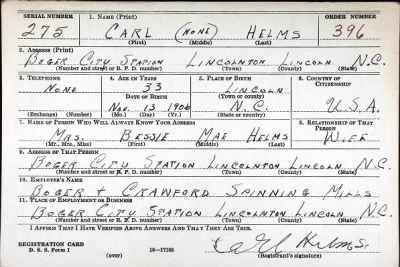 SERIAL NUMBER 1. NAME (Print) ORDER NUMBER
275 CARL (NONE) HELMS 396
(First) (Middle) (Last)
2. ADDRESS (Print)
BOGER CITY STATION LINCOLNTON LINCOLN N.C.
(Number and street or R. F. D. number) (Town) (County) (State)
3. TELEPHONE 4. AGE IN YEARS 5. PLACE OF BIRTH 6. COUNTRY OF CITIZENSHIP
NONE 33 LINCOLN
DATE OF BIRTH (Town or county)
NOV. 13 1906 N.C. U.S.A.
(Exchange) (Number) (Mo.) (Day) (Yr.) (State or country)
7. NAME OF PERSON WHO WILL ALWAYS KNOW YOUR ADDRESS 8. RELATIONSHIP OF THAT PERSON
MRS. BESSIE MAE HELMS WIFE
(Mr., Mrs., Miss) (First) (Middle) (Last)
9. ADDRESS OF THAT PERSON
BOGER CITY STATION LINCOLNTON LINCOLN N.C.
(Number and street or R. F. D. number) (Town) (County) (State)
10. EMPLOYER'S NAME
BOGER + CRAWFORD SPINNING MILLS
11. PLACE OF EMPLOYMENT OR BUSINESS
BOGER CITY STATION LINCOLNTON LINCOLN N.C.
(Number and street or R. F. D. number) (Town) (County) (State)
I AFFIRM THAT I HAVE VERIFIED ABOVE ANSWERS AND THAT THEY ARE TRUE.
REGISTRATION CARD
D. S. S. Form 1 (over) 16—17105 Carl Helms.
(Registrant's signature)